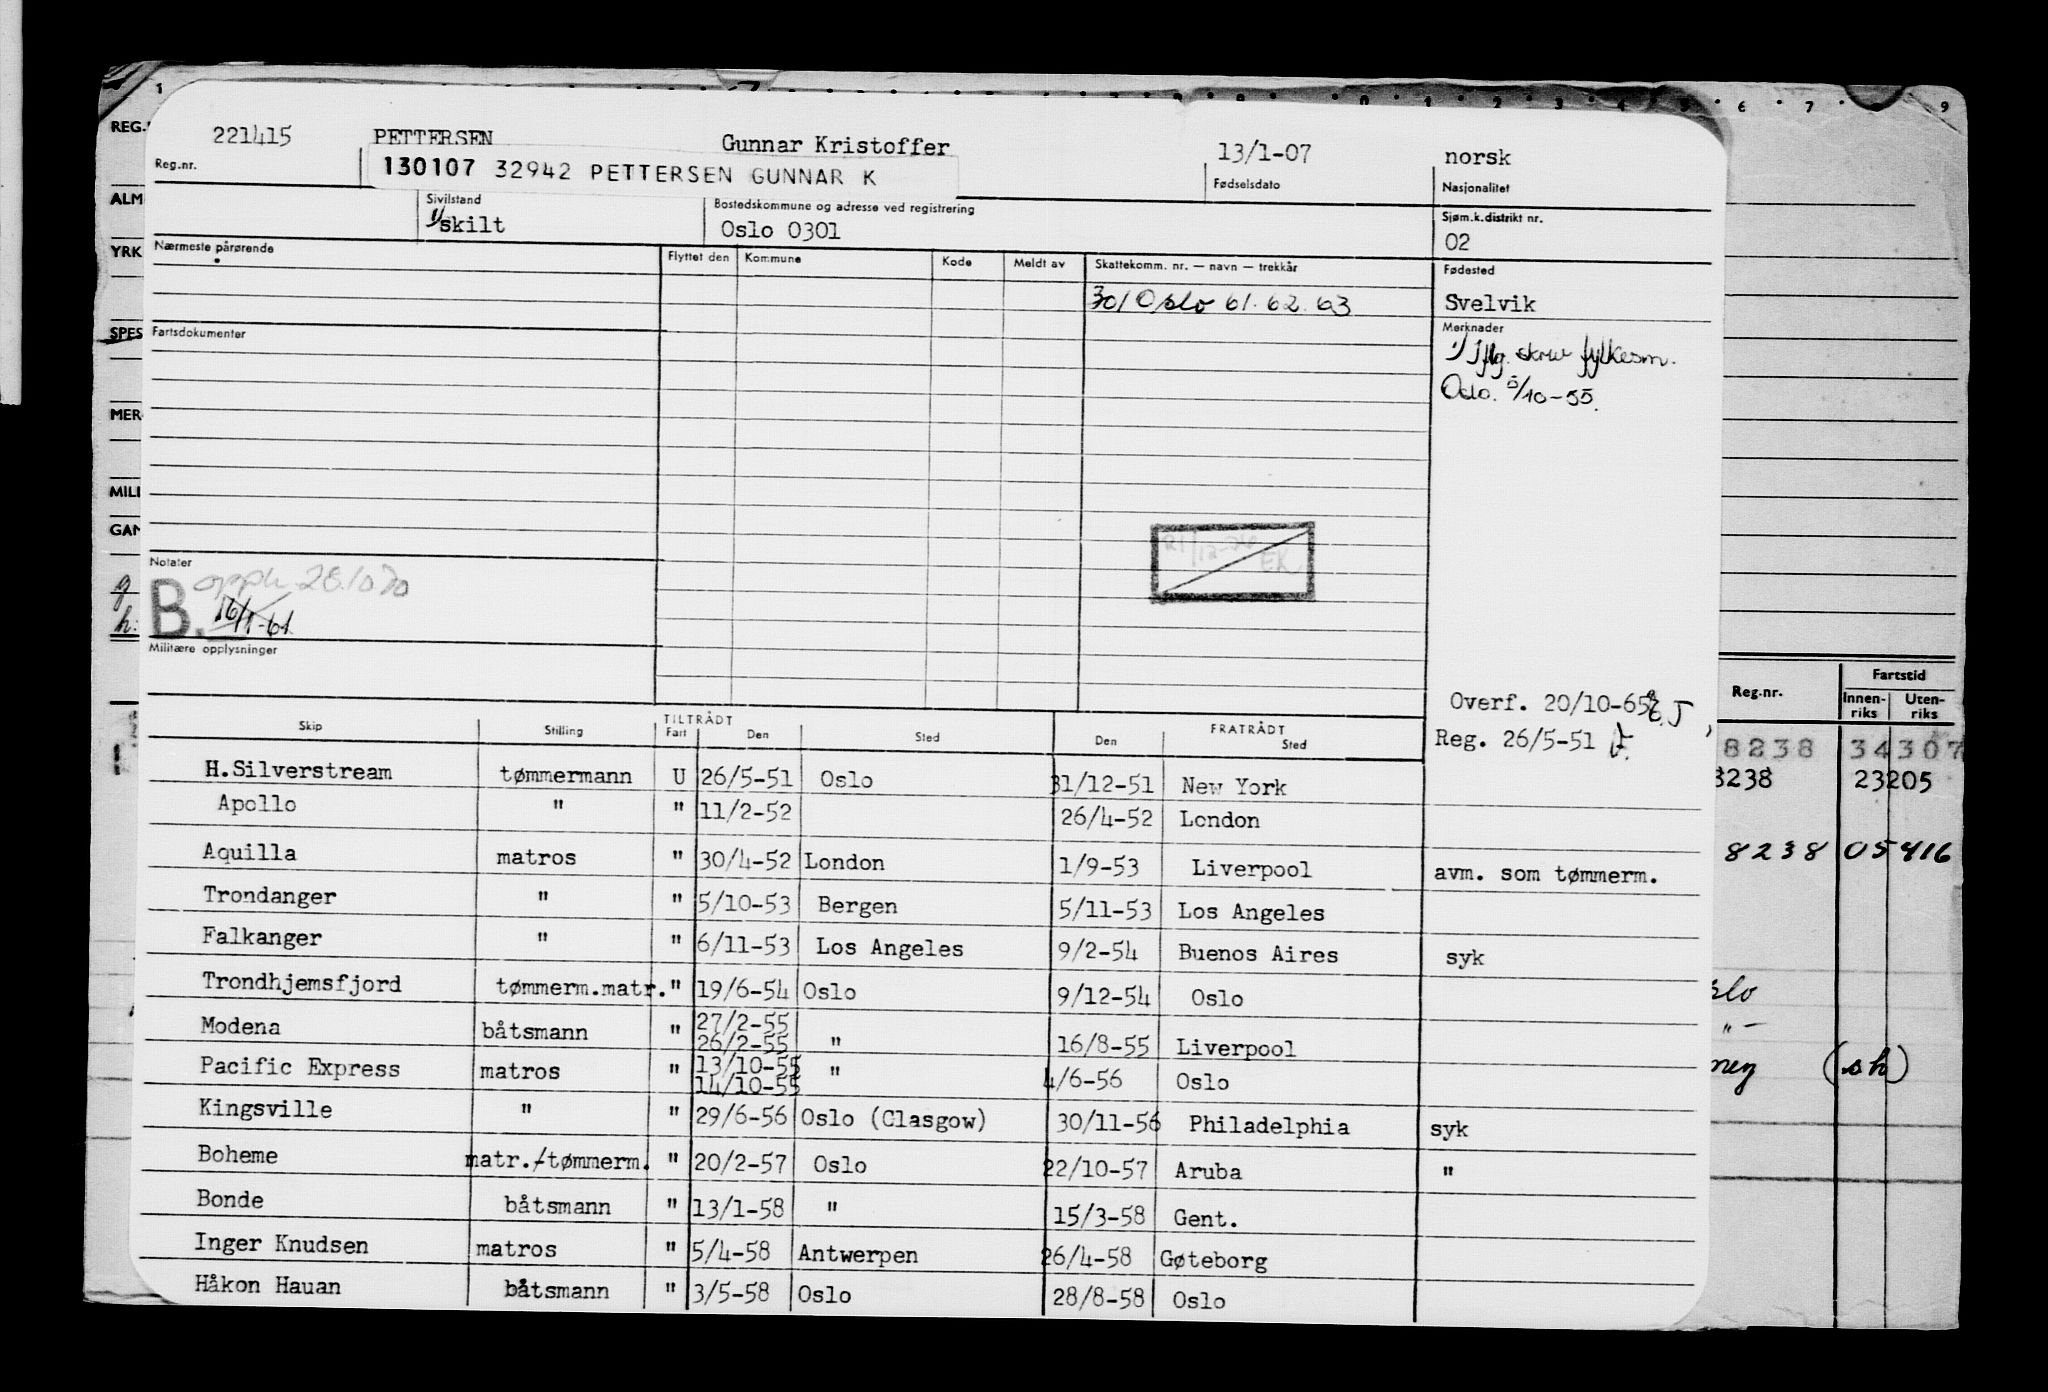 1 0 1 2 3 4 5 6 7 8 9
REG.
221415 PETTERSEN Gunnar Kristoffer 13/1-07 norsk
Reg.nr. 130107 32942 PETTERSEN GUNNAR K Fødselsdato Nasjonalitet
ALM
Sivilstand Bostedskommune og adresse ved registrering Sjøm.k.distrikt nr.
1/skilt Oslo 0301 02
YRK
Nærmeste pårørende Flyttet den Kommune Kode Meldt av Skattekomm. nr. — navn — trekkår Fødested
301 Oslo 61. 62. 63 Svelvik
SPES
Fartsdokumenter Merknader
1/ jflg. skriv fylkesm.
Oslo. 5/10-55.
MER
MILI
GAN
Notater
21/12- EK
B. opph. 28.10 70
g
h:
16/1-61
Militære opplysninger
Fartstid
Reg.nr. Innen-riks Uten-riks
Overf. 20/10-65
Reg. 26/5-51
Skip Stilling TILTRÅDT Fart Den Sted FRATRÅDT Den Sted
8238 34307
H.Silverstream tømmermann U 26/5-51 Oslo 31/12-51 New York
8238 23205
Apollo " " 11/2-52 26/4-52 London
Aquilla matros " 30/4-52 London 1/9-53 Liverpool avm. som tømmerm.
8238 05416
Trondanger " " 5/10-53 Bergen 5/11-53 Los Angeles
Falkanger " " 6/11-53 Los Angeles 9/2-54 Buenos Aires syk
Trondhjemsfjord tømmerm.matr. " 19/6-54 Oslo 9/12-54 Oslo
slo
" —
Modena båtsmann " 27/2-55 26/2-55 " 16/8-55 Liverpool
Pacific Express matros " 13/10-55 14/10-55 " 4/6-56 Oslo
ney (sh)
Kingsville " " 29/6-56 Oslo (Glasgow) 30/11-56 Philadelphia syk
Boheme matr./-tømmerm. " 20/2-57 Oslo 22/10-57 Aruba "
Bonde båtsmann " 13/1-58 " 15/3-58 Gent.
Inger Knudsen matros " 5/4-58 Antwerpen 26/4-58 Gøteborg
Håkon Hauan båtsmann " 3/5-58 Oslo 28/8-58 Oslo